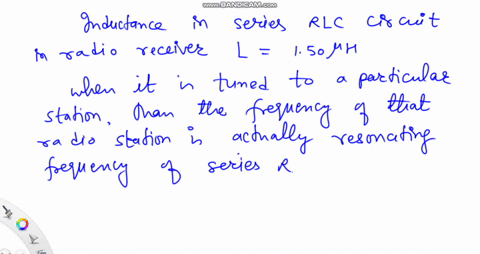 WWW.BANDICAM.COM
Inductance in series RLC circuit
in radio receiver L = 1.50 μH
when it is tuned to a particular
station, than the frequency of that
radio station is actually resonating
frequency of series R